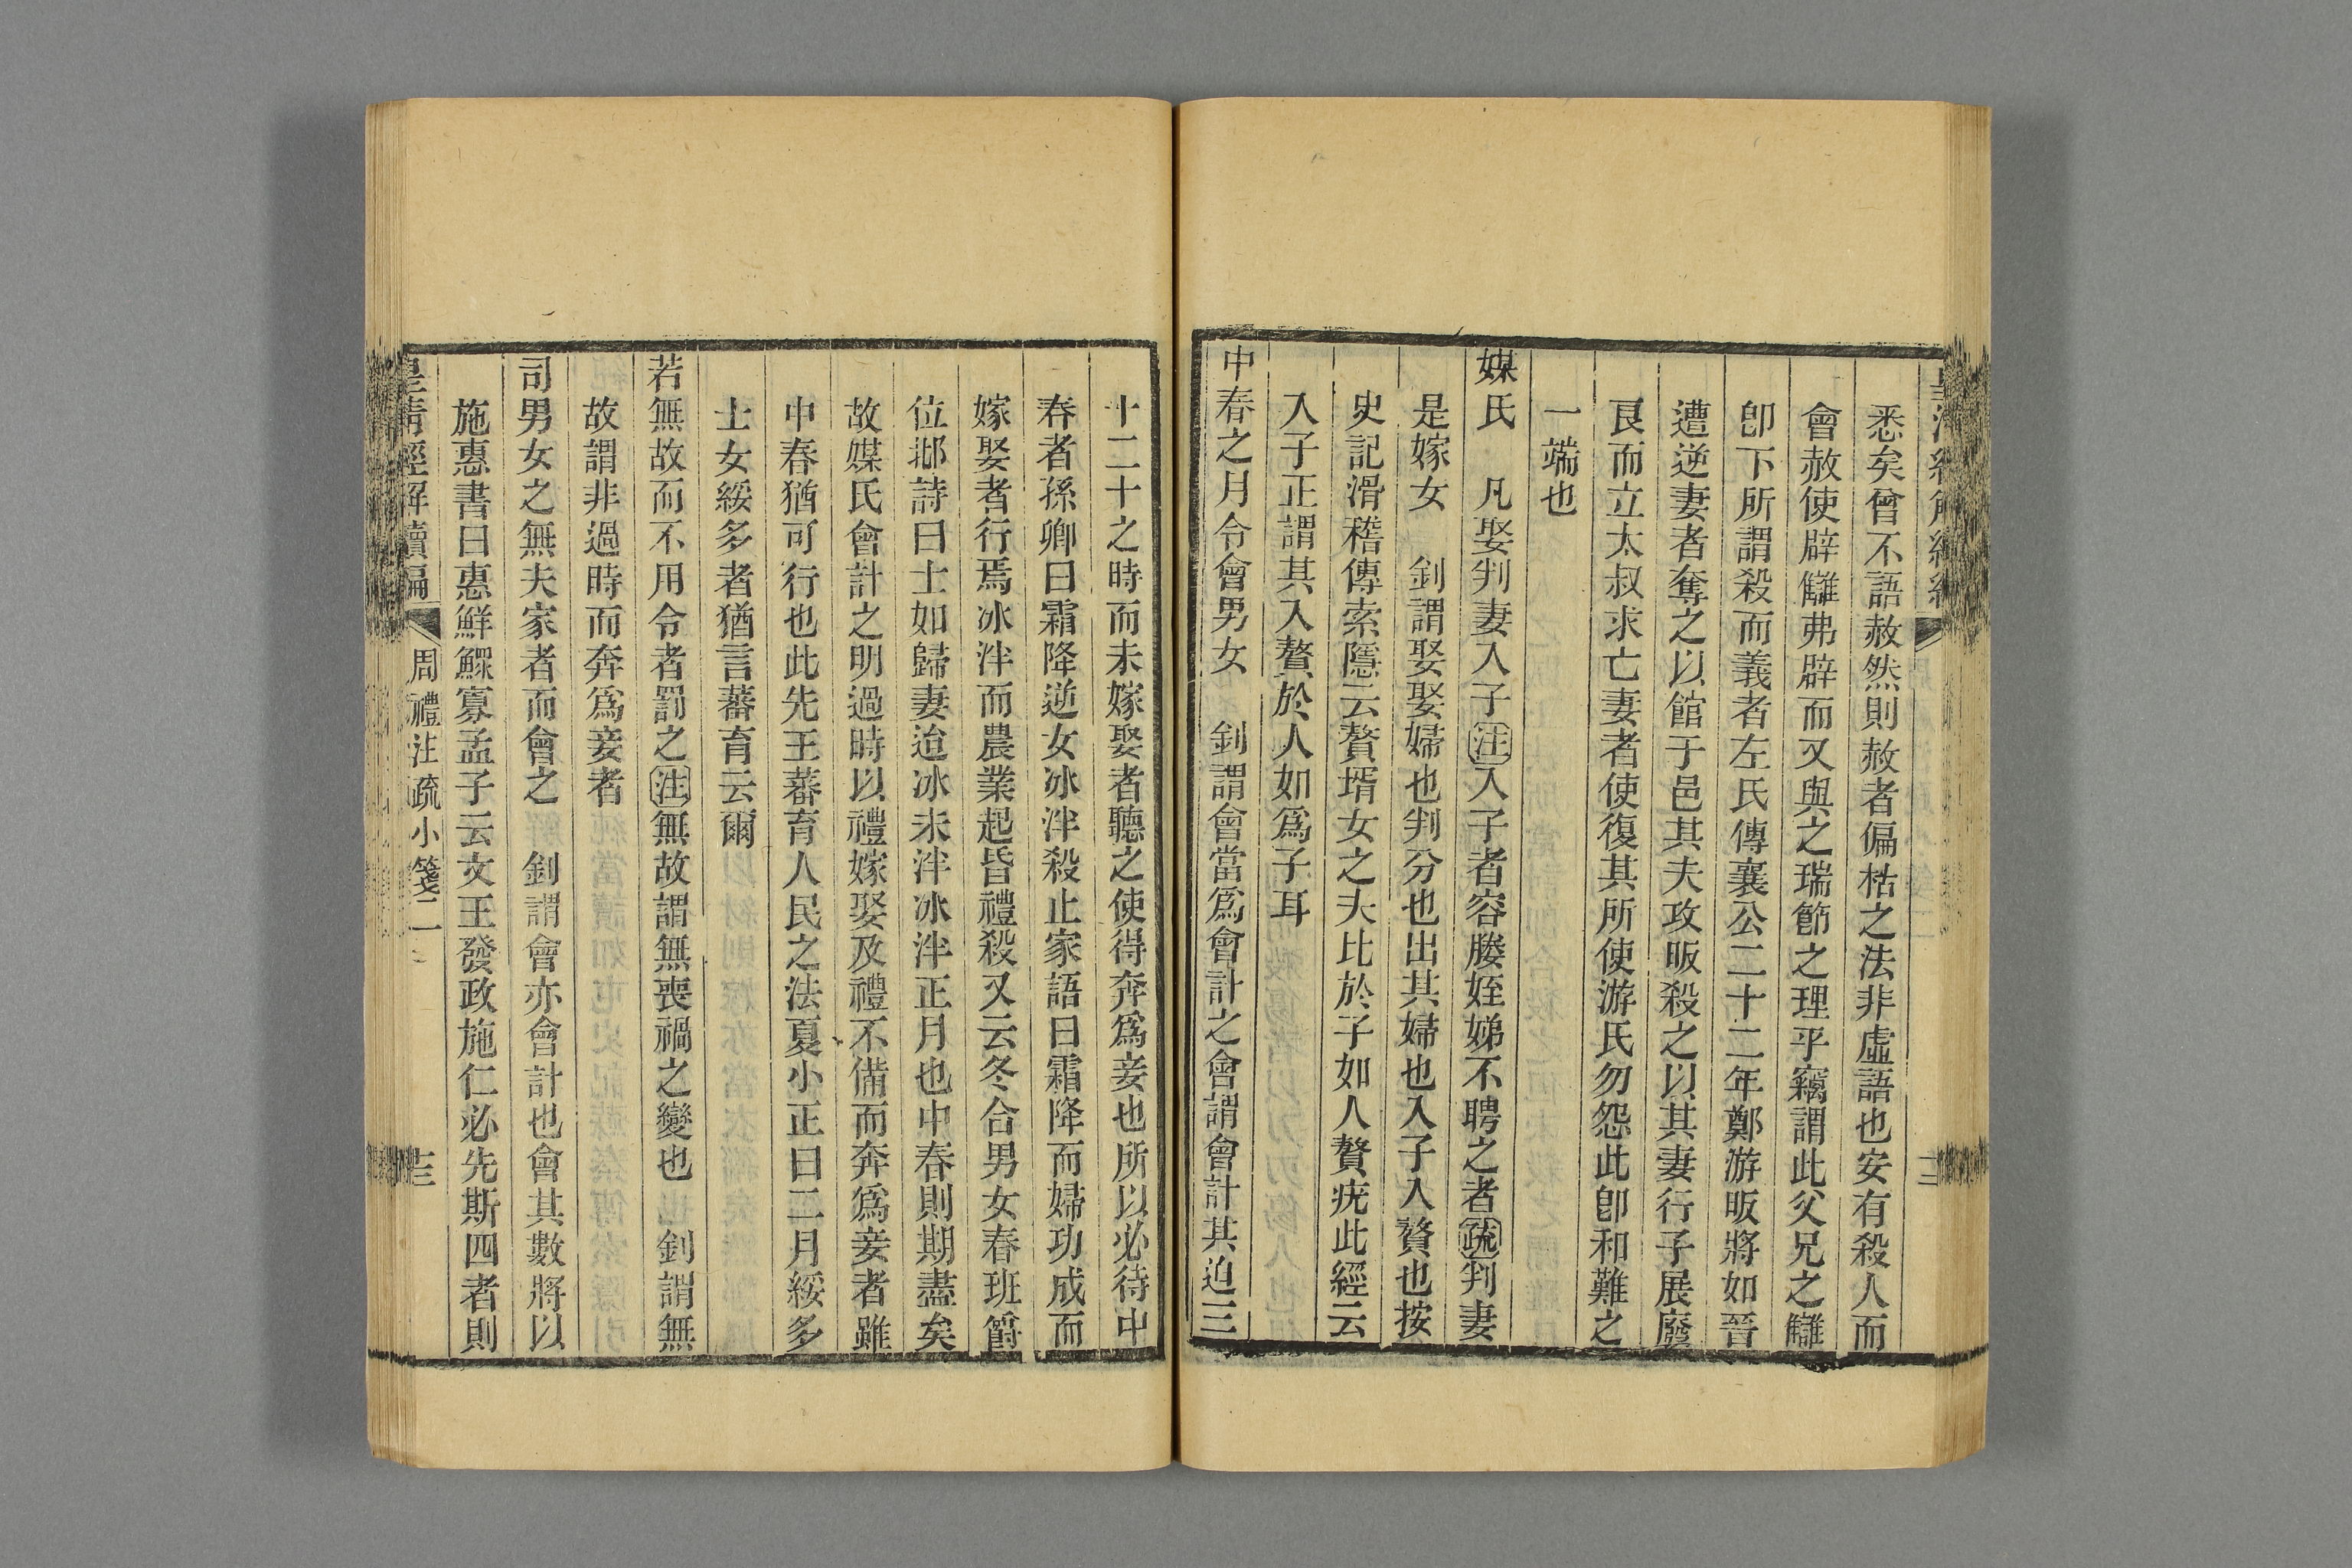 悉矣曾不語赦然則赦者偏枯之法非虛語也安有殺人而
會赦使辟讎弗辟而又與之瑞節之理乎竊謂此父兄之讎
卽下所謂殺而義者左氏傳襄公二十二年鄭游昄將如晉
遭逆妻者奪之以館于邑其夫攻昄殺之以其妻行子展廢
良而立太叔求亡妻者使復其所使游氏勿怨此卽和難之
一端也
媒氏　凡娶判妻入子注入子者容媵姪娣不聘之者疏判妻
是嫁女　釗謂娶娶婦也判分也出其婦也入子入贅也按
史記滑稽傳索隱云贅壻女之夫比於子如人贅疣此經云
入子正謂其入贅於人如爲子耳
中春之月令會男女　釗謂會當爲會計之會謂會計其迨三
十二十之時而未嫁娶者聽之使得奔爲妾也所以必待中
春者孫卿曰霜降逆女冰泮殺止家語曰霜降而婦功成而
嫁娶者行焉冰泮而農業起昏禮殺又云冬合男女春班爵
位邶詩曰士如歸妻迨冰未泮冰泮正月也中春則期盡矣
故媒氏會計之明過時以禮嫁娶及禮不備而奔爲妾者雖
中春猶可行也此先王蕃育人民之法夏小正曰二月綏多
士女綏多者猶言蕃育云爾
若無故而不用令者罰之注無故謂無喪禍之變也　釗謂無
故謂非過時而奔爲妾者
司男女之無夫家者而會之　釗謂會亦會計也會其數將以
施惠書曰惠鮮鰥寡孟子云文王發政施仁必先斯四者則
皇清經解續編　周禮注疏小箋二